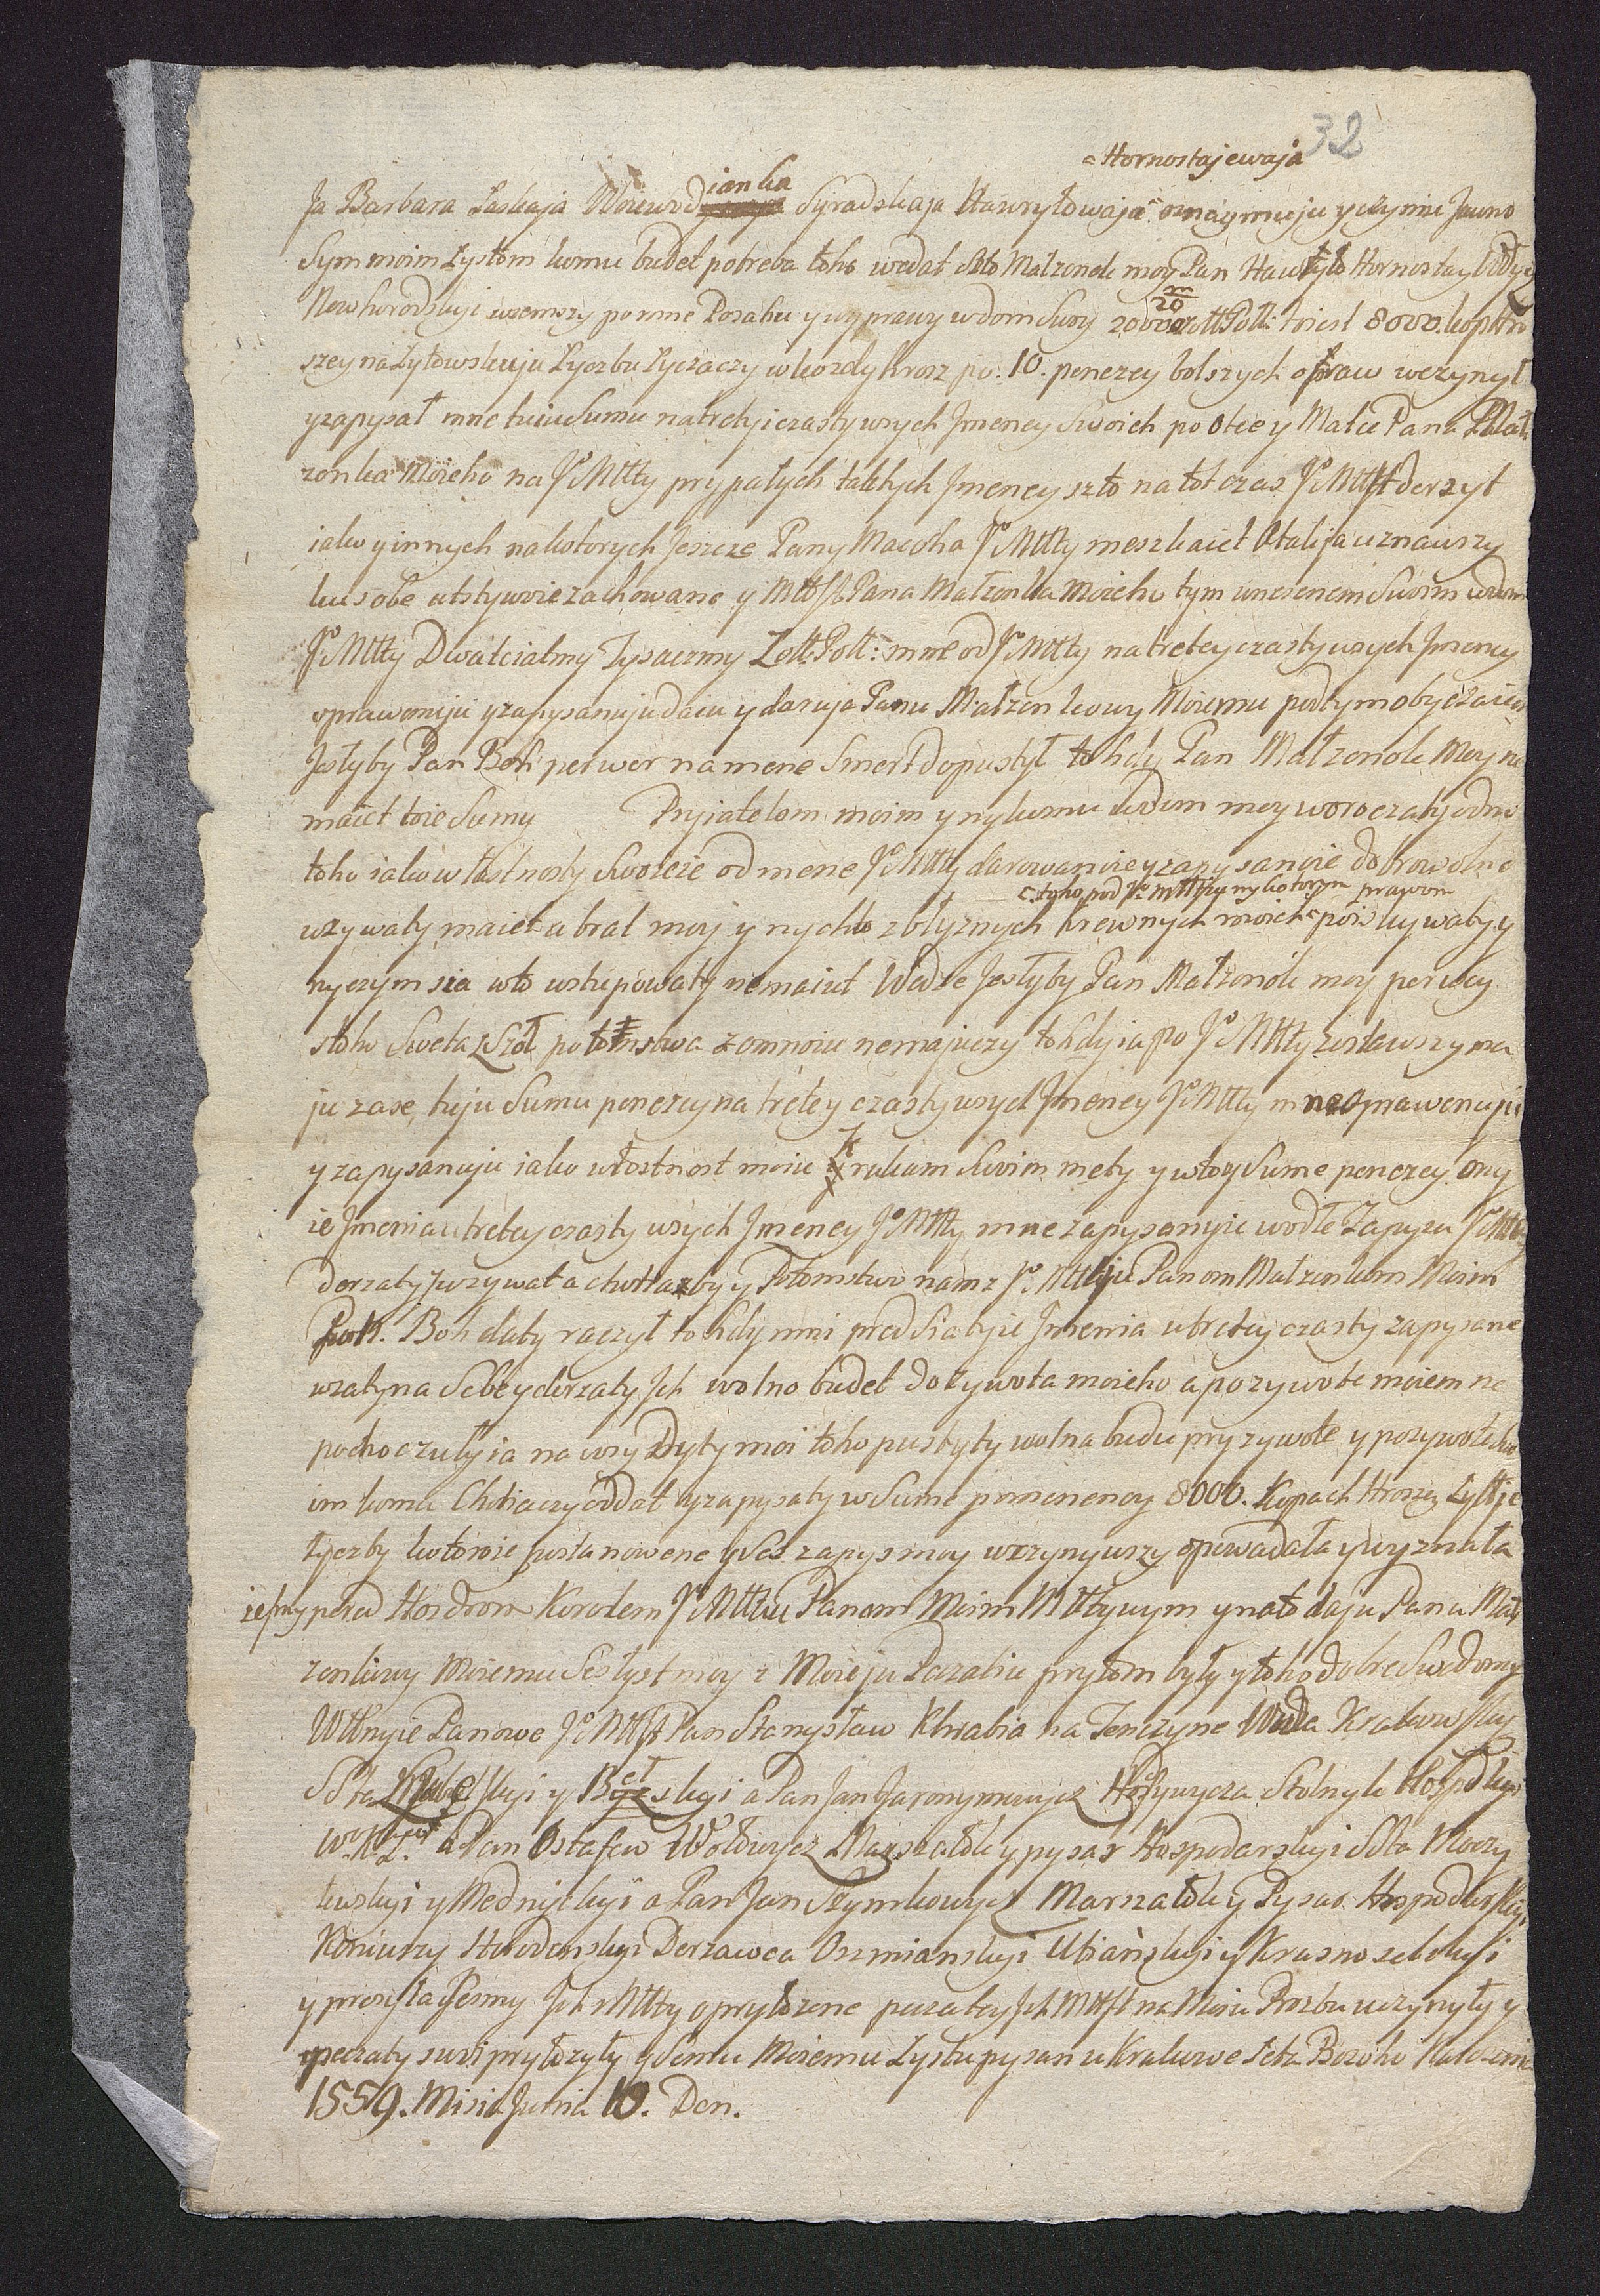 32
Hornostajewaja
Ja Barbara Łaskaja Woiewodianka Syradskaja Hawryłowaja oznaymuju y czyniu Jawno
Sym moim Łystom komu budet potreba toho wedat szto Małzonok moy Pan Hawryło Hornostay
Nowhorodskyi wzemszy po mne Posahu y wyprawy w dom Swoy 20000 zołł Poll: to iest 8000. kop Hro
szey na Łytowskuju Łyczbu Łyczaczy w kozdy hrosz po. 10. penezey bołszych opraw wczynył
y zapysał mne tuiu Sumu na tretyi czasty wsych Jmeney Swoich po Otce y Matce Pana Małz
zonka Moieho na Jo Mtty prypałych takhych Jmeney szto na tot czas Jo Mtt derzyt
iako y innych na kotorych Jeszcze Pany Macoha Jo Mtty meszkaiet A tak ja uznawszy
ku sobe utstywoie zachowane y Pana Małzonka Moieho tym wnesenem Swoim
Jo Mtty Dwatcatmy Tysaczmy Zołł: Poll: mne od Jo Mtty na tretey czasty wsych Jmeney
oprawenuju y zapysanuju daiu y daruju Panu Małzonkowy Moiemu pod tym obyczaiem
Jestyby Pan Boh perwey na mene Smert dopustył tohdy Pan Małzonok Moy ne
maiet toie Sumy Pryiatelom moim y nykomu w dom moy woroczaty odno
toho iako włastnosty Swoieie od mene Jo Mtty darowanoie y zapysanoie dobrowolne
toho pod Jo Mtty ny kotorym prawom
uzywaty maiet a brat moj y nychto z błyznych krewnych moich poiskywaty y
nyczym sia w to wstupowaty nemaiut Wedze Jestyby Pan Małzonok moy perwey
s toho Sweta zszoł potomstwa zo mnoiu nemajuczy tohdy ia po Jo Mtty zostawszy ma
ju zase tuju Sumu penezey na tretey czasty wsych Jmeney Jo Mtty mne oprawenuju
y zapysanuju iako włostnost moiu k rukam Swoim mety y w toy Sume penezey ony
ie Jmenia u tretey czasty wsych Jmeney Jo Mtty mne zapysanyie wodłe Zapysu Jo Mtty
derzaty y uzywat a chotiazby y Potomstwo nam z Jo Mttiju Panom Małzonkom Moim
Pan. Boh daty raczył tohdy mni pred sia tyie Jmenia u tretey czasty zapysane
wzaty na Sebe y derzaty Jch wolno budet do zywota moieho a po zywote moiem ne
pochoczuly ia na wsy Dyty moi toho pustyty wolna budu pry zywote y po zywote Swo
im komu Chotiaczy oddat y zapysaty w Sume pomenenoy 8000. kopach Hroszey Łytt:
łyczby kotoroie postanowene y Ses zapys moy wczynywszy opowedała y wyznała
iesmy pered Hosdrom Korołem Jo Mttiu Panom Moim Mttywym y na to daju Panu Mał
zonkowy Moiemu Ses łyst moy z Moieju Peczatiu pry tom były y toho dobre Swedomy
Wttnyie Panowe Jo Mtt Pan Stanysław Hrabia na Tenczyne Wda Krakowskij
Stta skyi y Bełskyi a Pan Jan Jaronymowycz Stolnyk
W. K. L. a Pan Ostafew Wołowycz Marszałok y pysar Hospodarskyi Stta Moczy
kwskyi y Mednyckyi a Pan Jan Szymkowycz Marszałok y Pysar Hospodarskyi
Koniuszy Horodenskyi Derzawca Oszmianskyi Utiańskyi y Krasnoselskyi
y prosyła Jesmy Jch Mtty o pryłozene peczatey Jch Mtt na Moiu Prozbu uczynyły y
peczaty swoi pryłozyły y Semu Moiemu Łystu pysan u Krakowe Leta Bozoho Narozenia
1559. Misia Junia 10. Den.